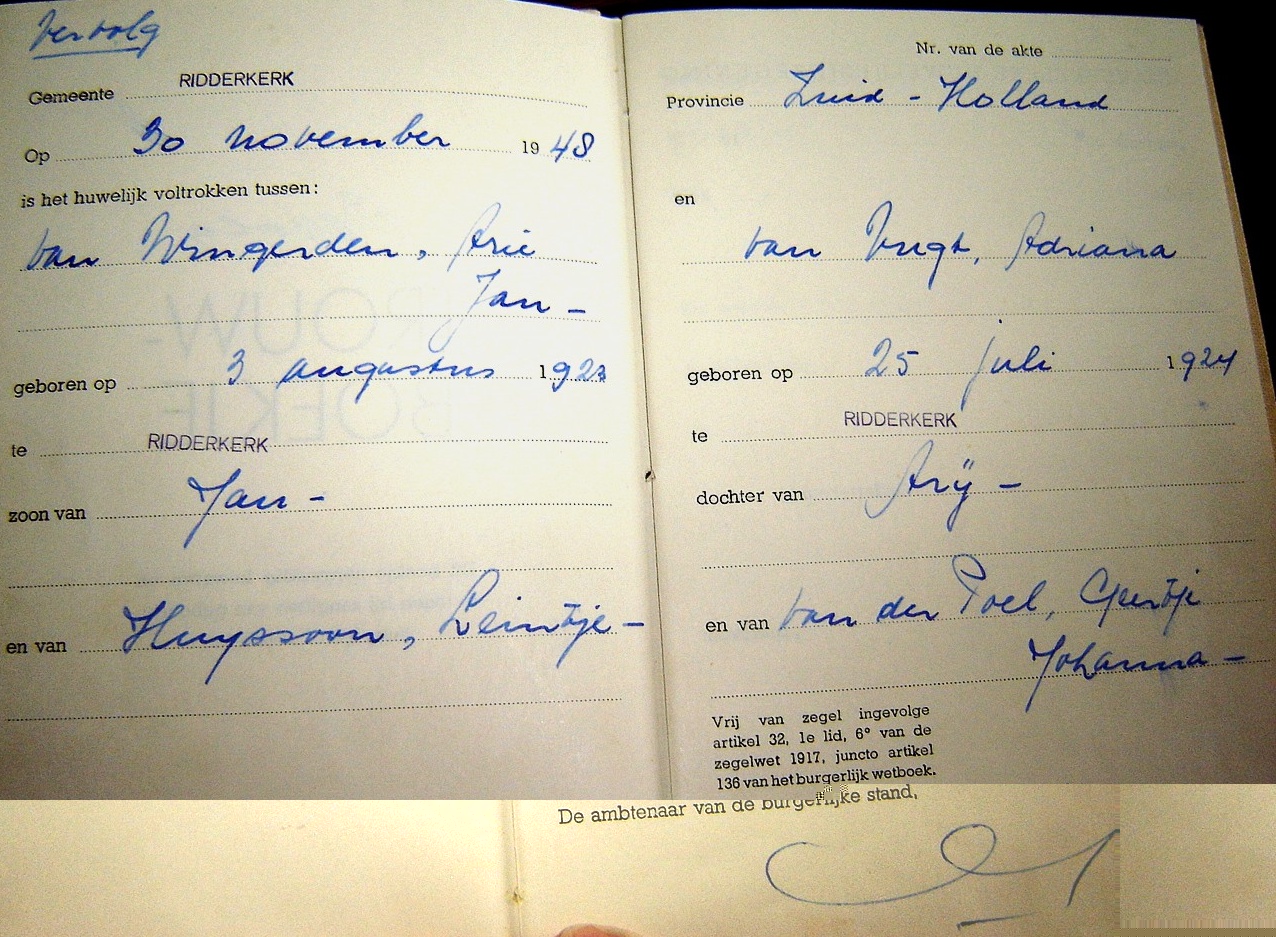 Vervolg
Gemeente RIDDERKERK
Op 30 november 1948
is het huwelijk voltrokken tussen:
van Wingerden, Arie
Jan -
geboren op 3 augustus 1923
te RIDDERKERK
zoon van Jan -
en van Huyssoon, Leintje -
Nr. van de akte
Provincie Zuid - Holland
en
van Vugt, Adriana
geboren op 25 juli 1924
te RIDDERKERK
dochter van Arij -
en van van der Poel, Geertje
Johanna -
Vrij van zegel ingevolge
artikel 32, 1e lid, 6° van de
zegelwet 1917, juncto artikel
136 van het burgerlijk wetboek.
De ambtenaar van de burgerlijke stand,